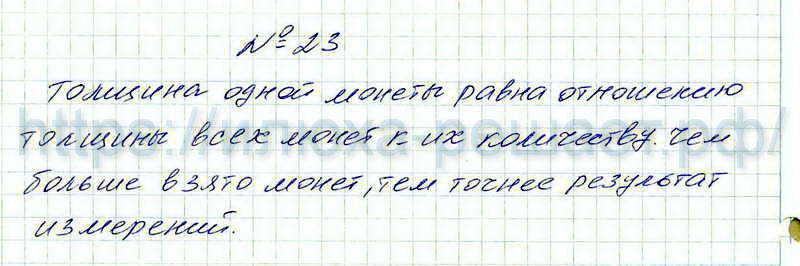 № 23
Толщина одной монеты равна отношению
толщины всех монет к их количеству. Чем
больше взято монет, тем точнее результат
измерений.